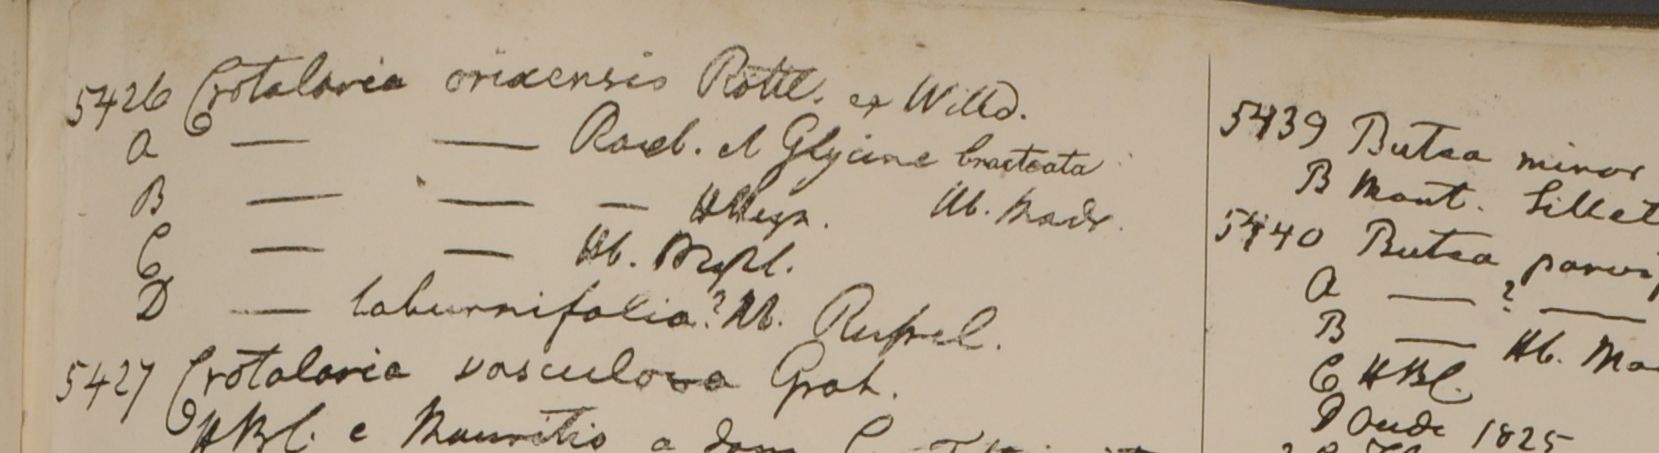 5426 Crotalaria orixensis Rottl. ex Willd.
A — — Roxb. et Glycine bracteata
B — — — HHeyn. Hb. Madr.
C — — Hb.
D — laburnifolia? Hb. Russel.
5427 Crotalaria vasculosa Grah.
HBC. e Mauritio a dom
5439 Butea minor
B Mont. Sillet
5440 Butea parvi
A — ? —
B — Hb. Ma
C HBC.
D Oude 1825